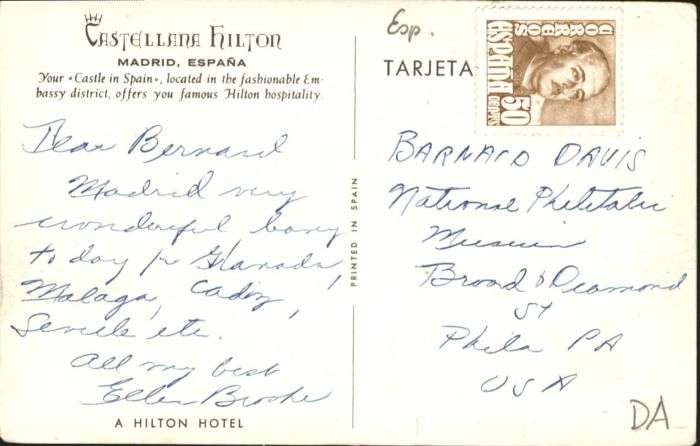 CASTELLANA HILTON
MADRID, ESPAÑA
Your «Castle in Spain», located in the fashionable Em-
bassy district, offers you famous Hilton hospitality.
Dear Bernard
Madrid very
wonderful
to day for Granada,
Malaga, Cadiz,
Seville etc.
All my best
Ellen
A HILTON HOTEL
PRINTED IN SPAIN
Esp.
TARJETA
CORREOS
ESPAÑA
50
CENTMS
BARNARD DAVIS
National Philatelic
Museum
Broad & Diamond
St
Phila PA
USA
DA